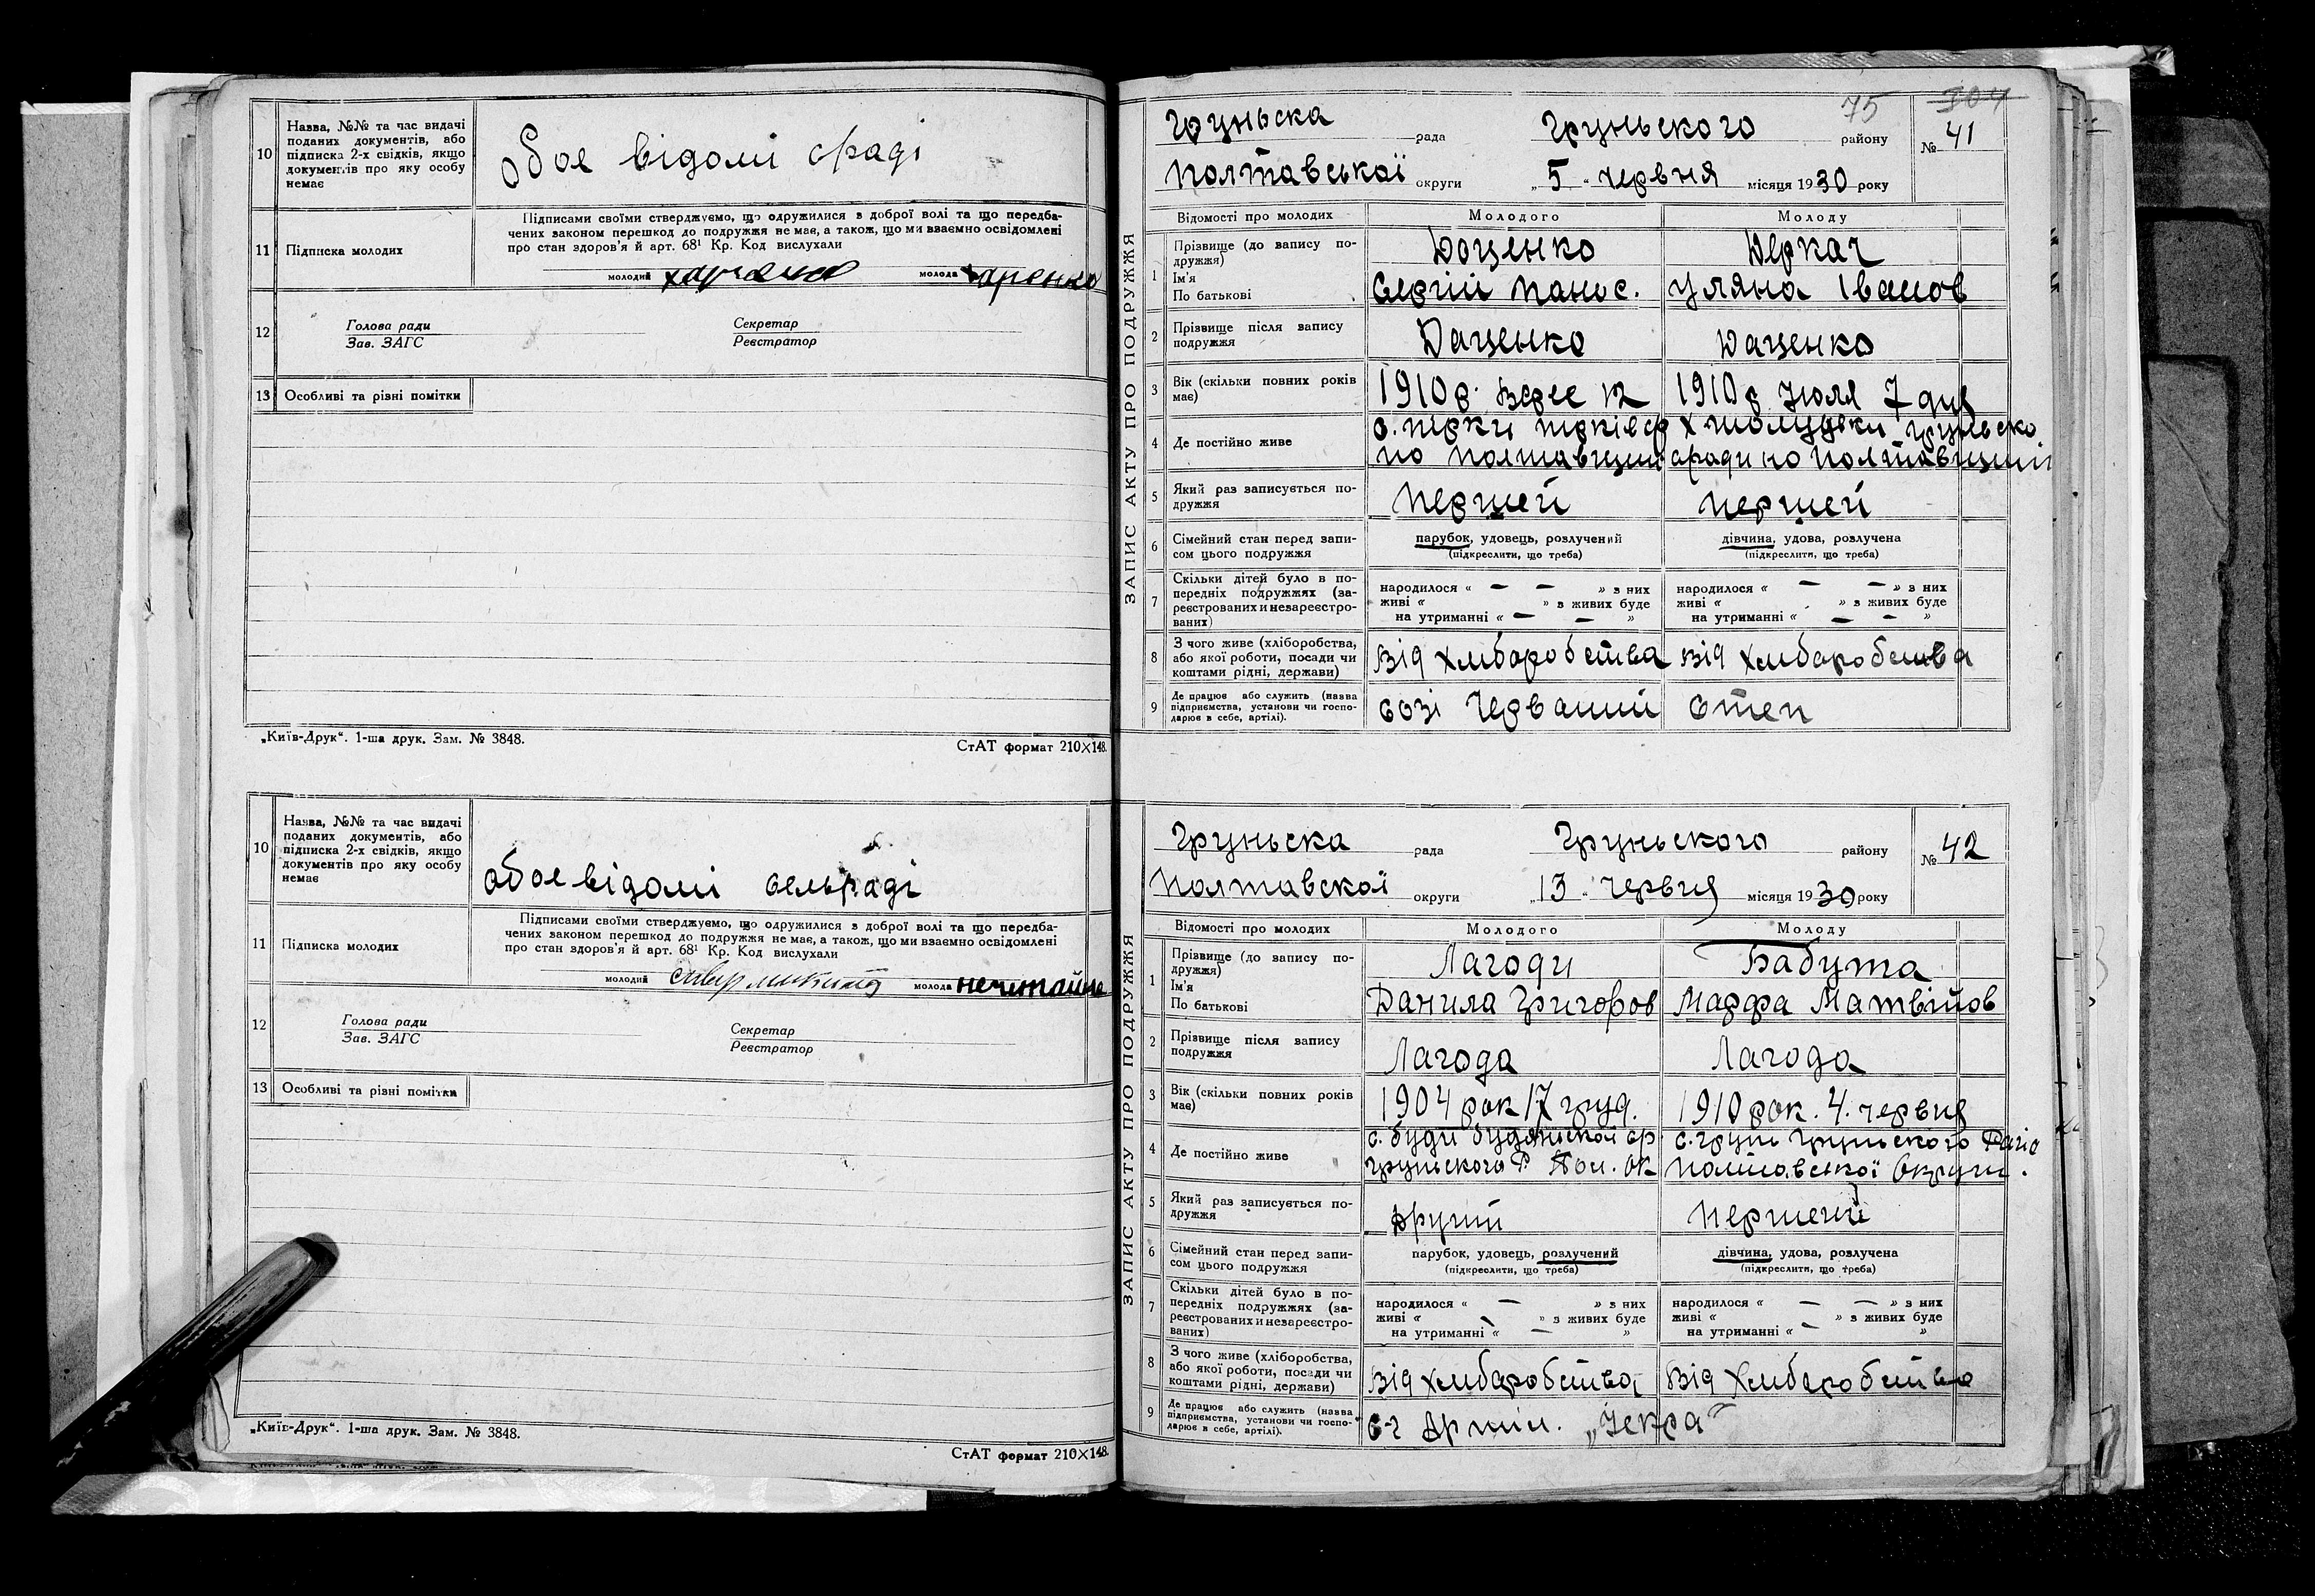 10
Назва, №№ та час видачі
поданих документів, або
підписка 2-х свідків, якщо
документів про яку особу
немає
обое відомі сраді
11
Підписка молодих
Підписами своїми стверджуємо, що одружилися з доброї волі та що передба-
чених законом перешкод до подружжя не має, а також, що ми взаємно освідомлені
про стан здоров'я й арт. 68¹ Кр. Код вислухали
молодий
молода
12
Голова ради
Зав. ЗАГС
Секретар
Реєстратор
13
Особливі та різні помітки
„Київ-Друк“. 1-ша друк. Зам. № 3848.
СтАТ формат 210×148.
10
Назва, №№ та час видачі
поданих документів, або
підписка 2-х свідків, якщо
документів про яку особу
немає
обое відомі сельраді
11
Підписка молодих
Підписами своїми стверджуємо, що одружилися з доброї волі та що передба-
чених законом перешкод до подружжя не має, а також, що ми взаємно освідомлені
про стан здоров'я й арт. 68¹ Кр. Код вислухали
молодий
молода
12
Голова ради
Зав. ЗАГС
Секретар
Реєстратор
13
Особливі та різні помітки
„Київ-Друк“. 1-ша друк. Зам. № 3848.
СтАТ формат 210×148.
75 304
ЗАПИС АКТУ ПРО ПОДРУЖЖЯ
Груньска рада Груньского району № 41
Полтавської округи „5“ червня місяця 1930 року
Відомості про молодих
Молодого
Молоду
1
Прізвище (до запису по-
дружжя)
Ім'я
По батькові
Доценко
Деркач
Сергій Панас.
Уляна Іванов
2
Прізвище після запису
подружжя
Даценко
Даценко
3
Вік (скільки повних років
має)
1910р. Верес 12
1910р Июля 7 дня
4
Де постійно живе
по Полтавщині
сради по Полтавщині
5
Який раз записується по-
дружжя
першей
першей
6
Сімейний стан перед запи-
сом цього подружжя
парубок, удовець, розлучений
(підкреслити, що треба)
дівчина, удова, розлучена
(підкреслити, що треба)
7
Скільки дітей було в по-
передніх подружжях (за-
реєстрованих и незареєстро-
ваних)
народилося « — — » з них
живі « » з живих буде
на утриманні « — — »
народилося « — — » з них
живі « » з живих буде
на утриманні « — — »
8
З чого живе (хліборобства,
або якої роботи, посади чи
коштами рідні, держави)
від хлиборобства
від хлиборобства
9
Де працює або служить (назва
підприємства, установи чи госпо-
дарює в себе, артілі).
созі Червоний
Степ
ЗАПИС АКТУ ПРО ПОДРУЖЖЯ
Груньска рада Груньского району № 42
Полтавскої округи „13“ червня місяця 1930 року
Відомості про молодих
Молодого
Молоду
1
Прізвище (до запису по-
дружжя)
Ім'я
По батькові
Лагоди
Бабута
Данила Григоров
Марфа Матвійов
2
Прізвище після запису
подружжя
Лагода
Лагода
3
Вік (скільки повних років
має)
1904 рок 17 груд.
1910 рок. 4. червня
4
Де постійно живе
с. буди будянской ср
Груньского Р. Пол. Ок
с. грунь Груньского
Полтавської Округи.
5
Який раз записується по-
дружжя
другий
першей
6
Сімейний стан перед запи-
сом цього подружжя
парубок, удовець, розлучений
(підкреслити, що треба)
дівчина, удова, розлучена
(підкреслити, що треба)
7
Скільки дітей було в по-
передніх подружжях (за-
реєстрованих и незареєстро-
ваних)
народилося « — » з них
живі « » з живих буде
на утриманні « — »
народилося « — — » з них
живі « » з живих буде
на утриманні « — »
8
З чого живе (хліборобства,
або якої роботи, посади чи
коштами рідні, держави)
від хлиборобства
від хлиборобства
9
Де працює або служить (назва
підприємства, установи чи госпо-
дарює в себе, артілі).
с-г Артіл. „Искра“